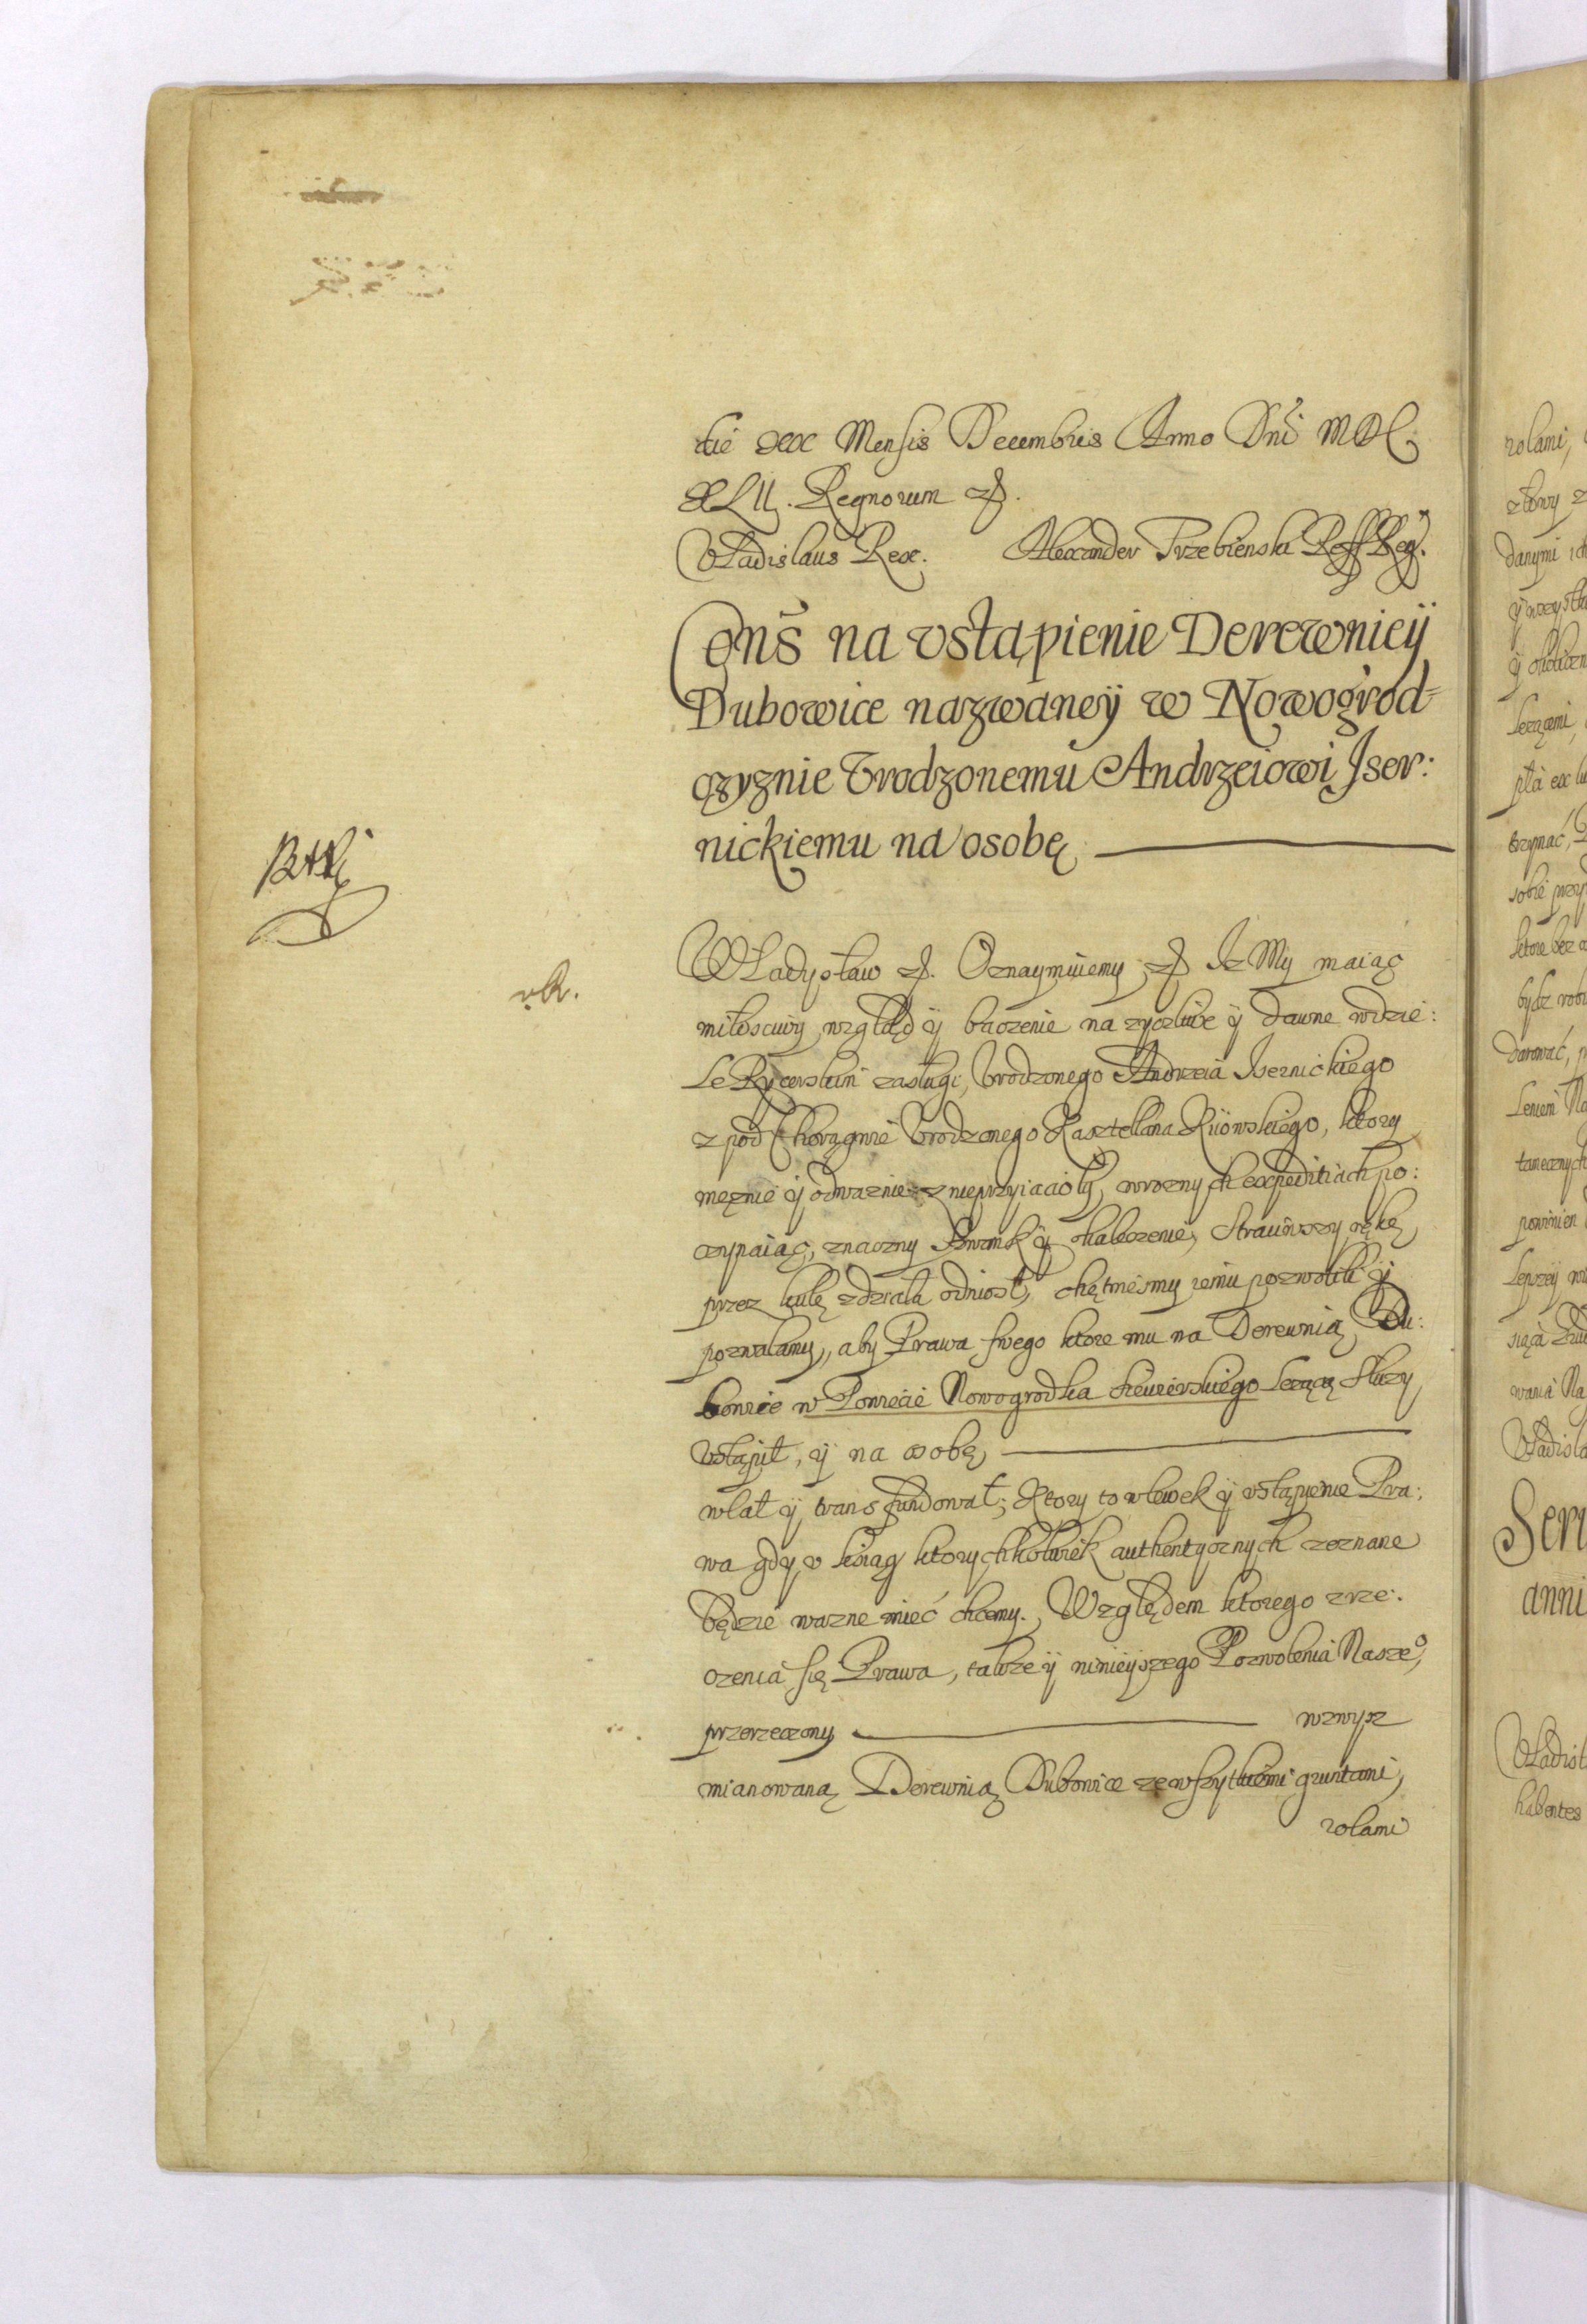 die XXX Mensis Decembris Anno Dni MDC
XLII. Regnorum
Vladislaus Rex. Alexander Trzebienski Reff. Regni
Cons na vstąpienie Derewniey
Dubowice nazwaney w Nowogrod=
czyznie Vrodzonemu Andrzeiowi Iser:
nickiemu na osobę
Władysław Oznaymuiemy Iż My maiąc
miłosciwy wzgląd ÿ baczenie na zyczliwe ÿ dawne wdzie:
le Rycerskim zasługi, Vrodzonego Andrzeia Isernickiego
z pod Chorągwie Vrodzonego Kasztellana Kiiowskiego, ktory
męznie ÿ odwaznie z nieprzyiacioły, wroznych expeditiach po:
czynaiąc, znaczny ÿ okaleczenie, straciwszy rękę
przez kulę z dziala odniosł, chętniesmy iemu pozwolili ÿ
pozwalamy, aby Prawa swego ktore mu na Derewnią Du:
bowice w Powiecie Nowogrodka Siewierskiego lezącą sluzy
Vstąpił, ÿ na osobę
wlał ÿ transfundował; Ktory to wlewek ÿ vstąpienie Pra:
wa gdy v ksiąg ktorychkolwiek authentycznych zeznane
będzie wazne mieć chcemy. Względem ktorego zrze:
czenia się Prawa, takze ÿ ninieyszego Pozwolenia Nasze°,
przerzeczony wzwysz
mianowaną Derewnią Dubowice ze wszytkiemi gruntami,
rolami